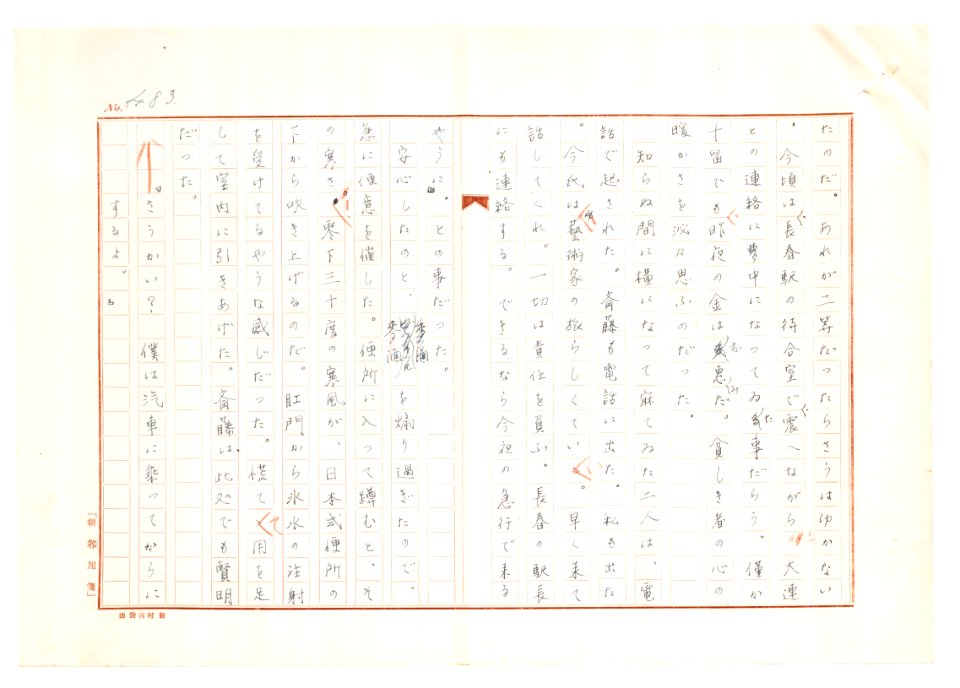 No. 483.
たのだ。あれが二等だつたらさうはゆかない
。今頃は長春駅の待合室で震へながら大連
との連絡に夢中になつてゐた事だらう。僅か
十留でも昨夜の金はお恵みだ。貧しき者の心の
暖かさを沁々思ふのだつた。
知らぬ間に横になつて寐てゐた二人は、電
話で起された。斎藤も電話に出た。私も出た
。今氏は藝術家の旅らしくていゝ。早く来て
話してくれ。一切は責任を負ふ。長春の駅長
にも連絡する。できるなら今夜の急行で来る
やうに。との事だつた。
安心したのと、麥酒を煽り過ぎたので、
急に便意を催した。便所に入つて蹲むと、そ
の寒さ。零下三十度の寒風が、日本式便所の
下から吹き上げるのだ。肛門から氷水の注射
を受けてるやうな感じだつた。慌てて用を足
して室内に引きあげた。斎藤は、此処でも賢明
だつた。
さうかい?僕は汽車に乗つてからに
するよ。